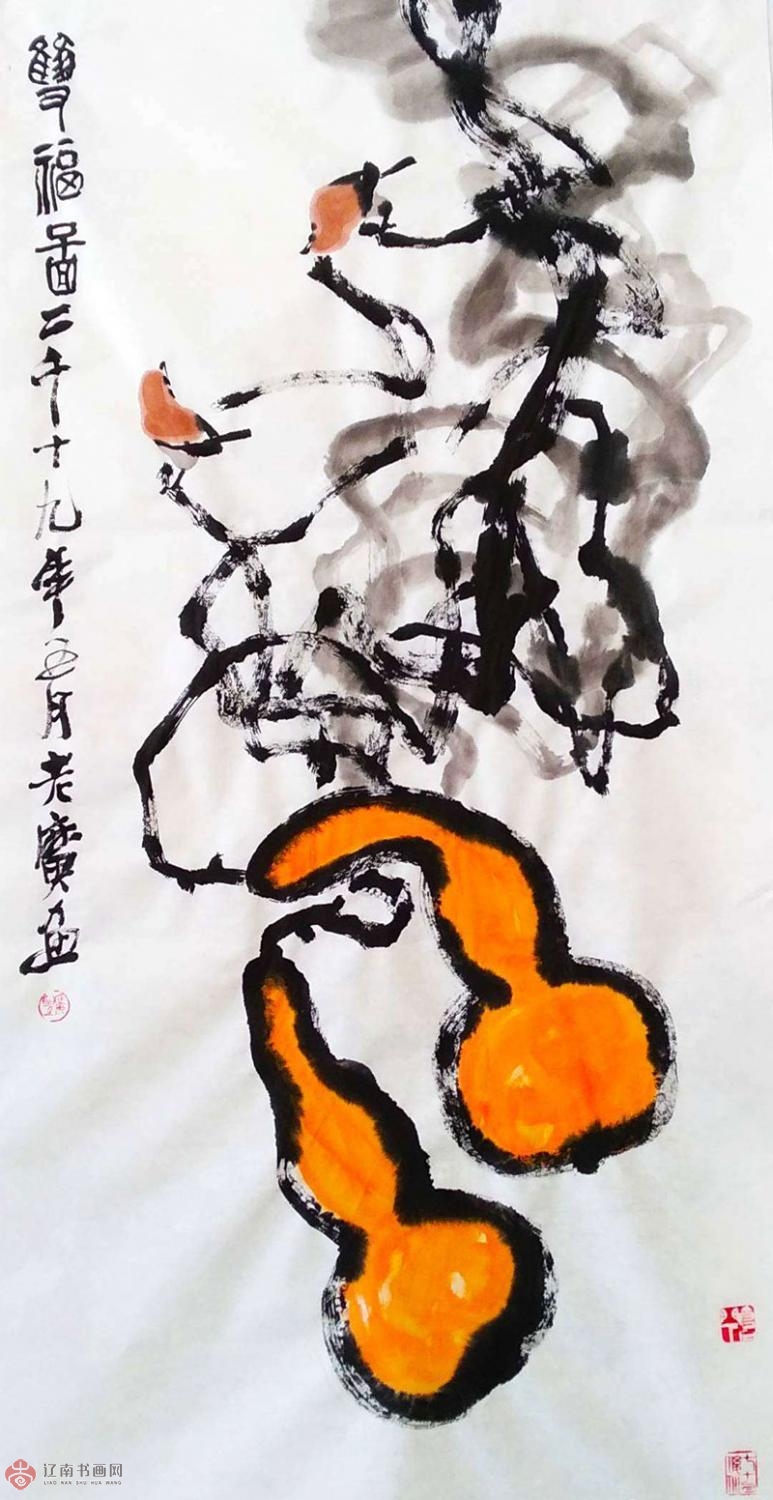 雙福圖二千十九年五月老寶畫
辽南书画网
LIAO NAN SHU HUA WANG